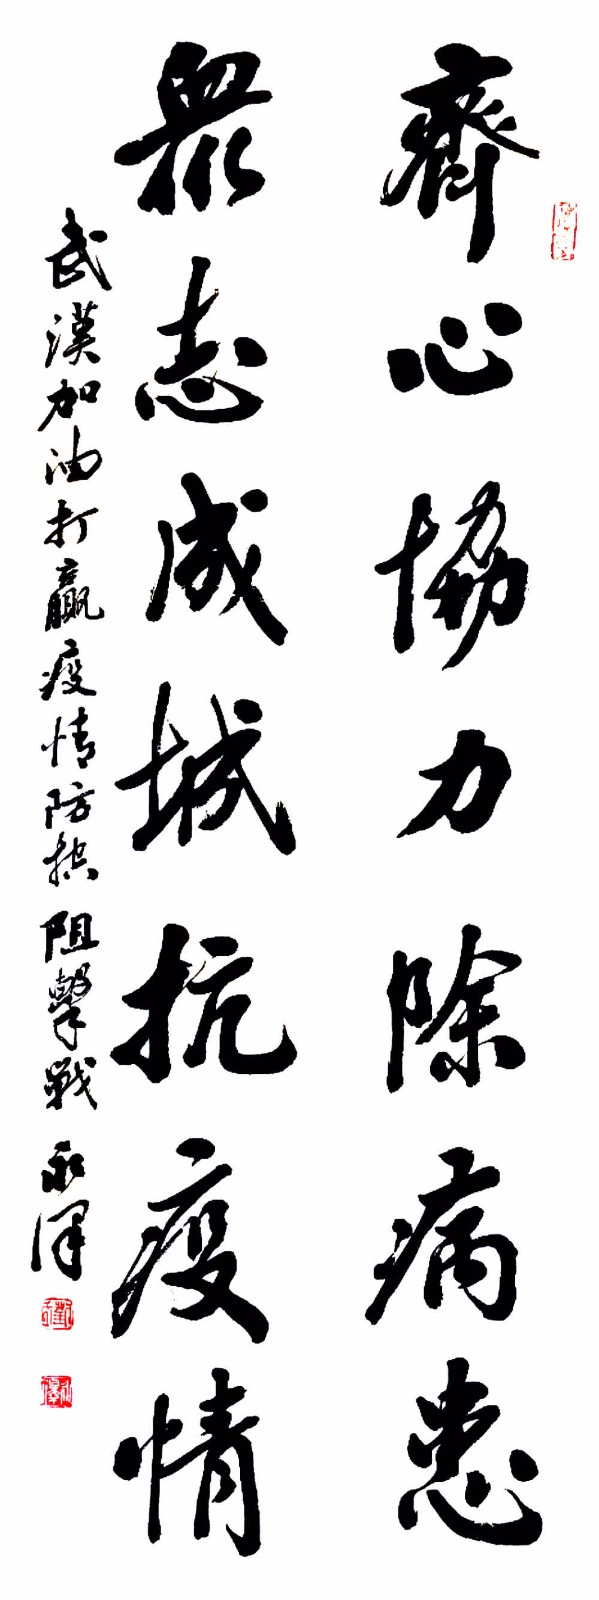 齊心協力除病患
衆志成城抗疫情
武漢加油打贏疫情防控阻擊戰 永澤